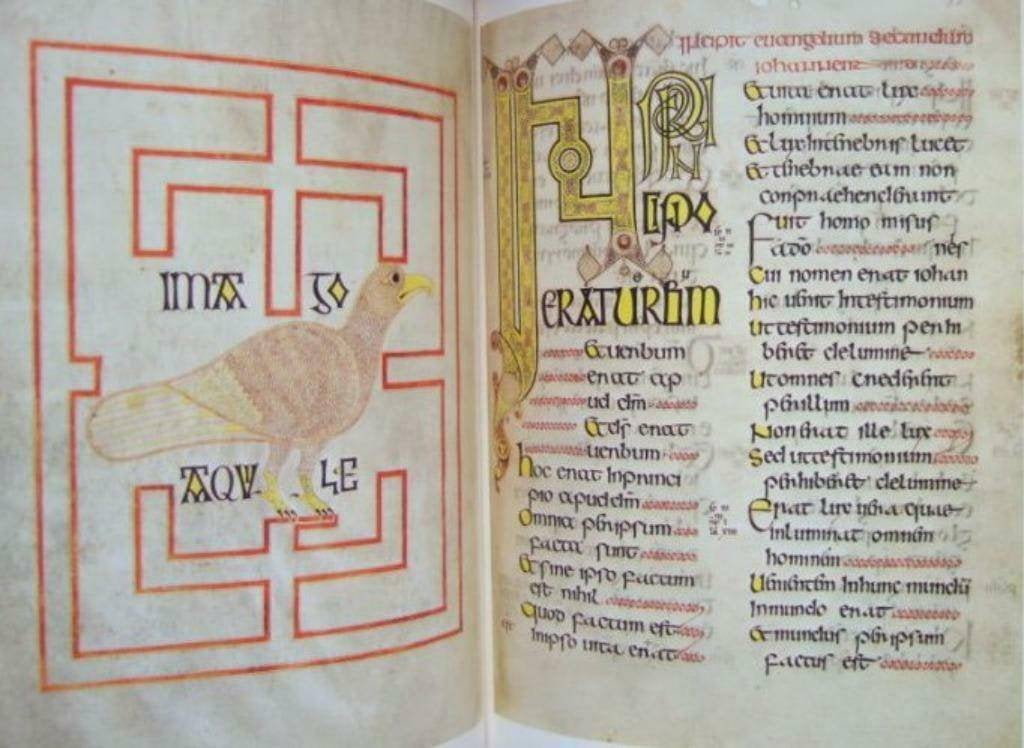 IMA GO
AQV LE
Incipit euangelium secundum
iohannem
INPRIN
CIPIO
ERATUERBUM
Et uerbum
erat ap
ud dm̄
Et ds̄ erat
uerbum
hoc erat inprinci
pio apud dm̄
Omnia per ipsum
facta sunt
Et sine ipso factum
est nihil
Quod factum est
Inipso uita erat
Et uita erat lux
hominum
Et lux intenebris lucet
Et tenebrae eam non
conpraehenderunt
Fuit homo misus
a dō nes
Cui nomen erat iohan
hic uenit Intestimonium
Ut testimonium perhi
beret delumine
Ut omnes crederent
per illum
Non erat ille lux
Sed ut testimonium
perhiberet delumine
Erat lux uera quae
Inluminat omnem
hominem
Uenientem Inhunc mundū
Inmundo erat
Et mundus per ipsum
factus est